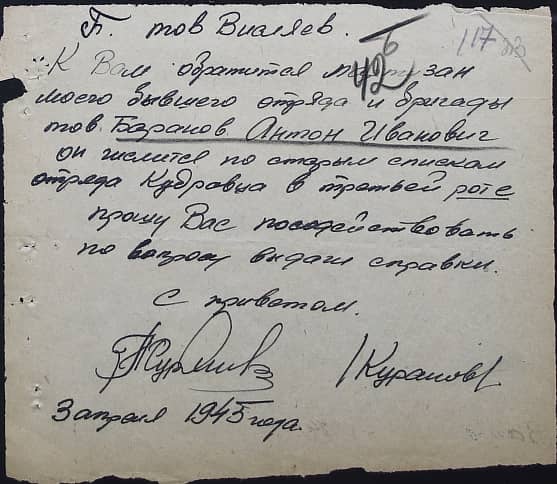 117
426
Г. тов Виляев.
К Вам обратится партизан
моего бывшего отряда и бригады
тов. Баранов Антон Иванович
он числится по старым спискам
отряда Кудравца в третьей роте
прошу Вас посодействовать
по вопросу выдачи справки.
С приветом.
/Куранов/
3 апреля 1945 года.